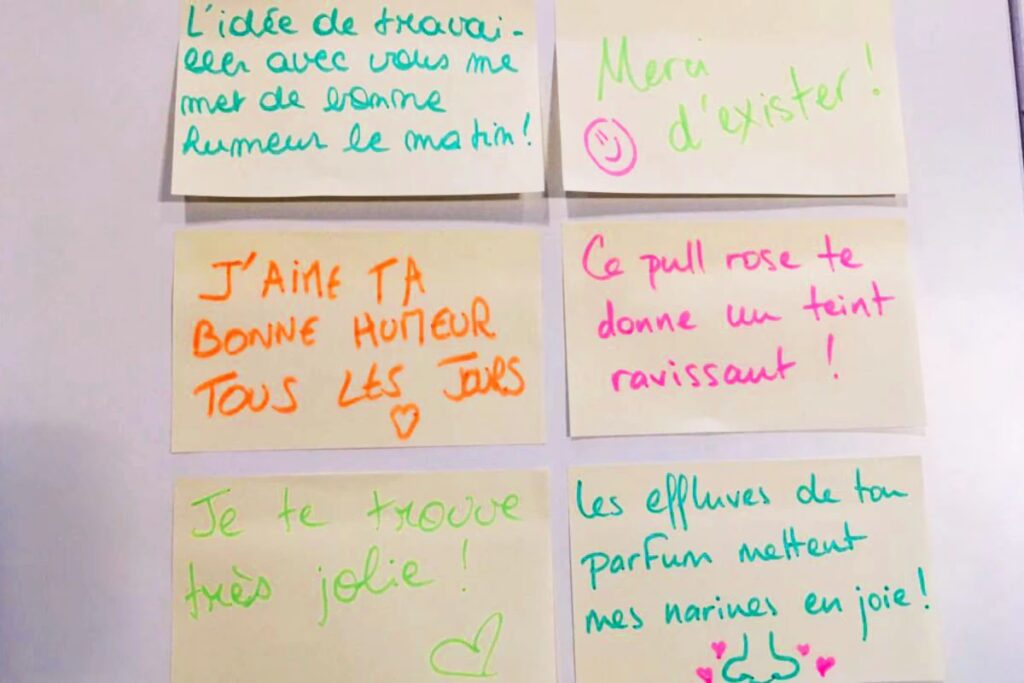 L'idée de travai-
ller avec vous me
met de bonne
humeur le matin!
Merci
d'exister!
J'AIME TA
BONNE HUMEUR
TOUS LES JOURS
Ce pull rose te
donne un teint
ravissant !
Je te trouve
très jolie !
Les effluves de ton
parfum mettent
mes narines en joie!